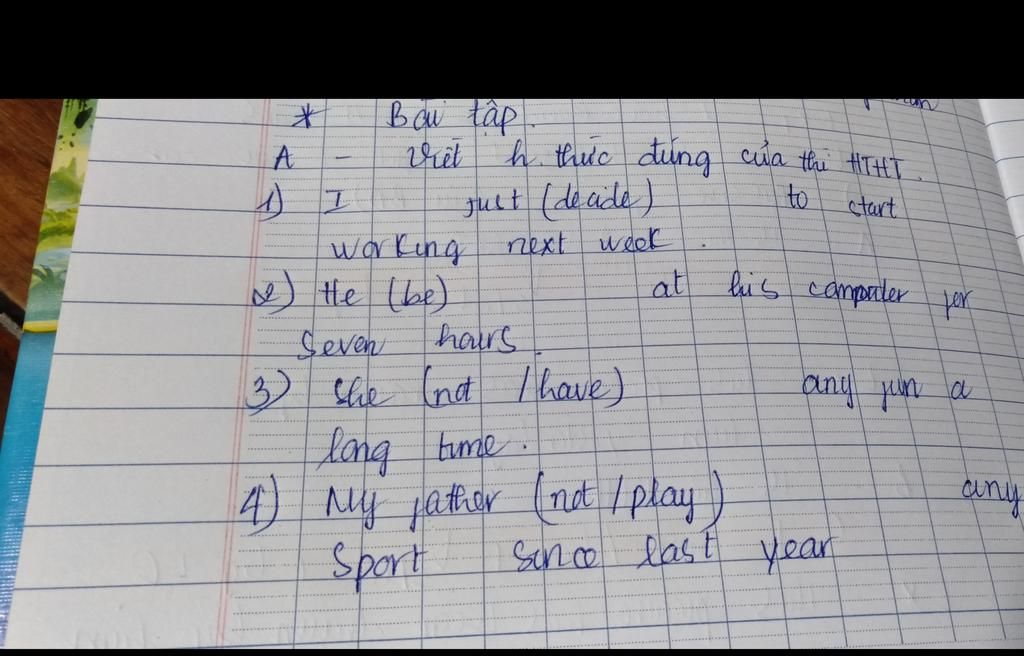 * Bài tập.
A - Viết h. thức đúng của thì HTHT.
1) I just (decide) to start
working next week.
2) He (be) at his computer for
seven hours.
3) She (not / have) any fun a
long time.
4) My father (not / play) any
sport since last year